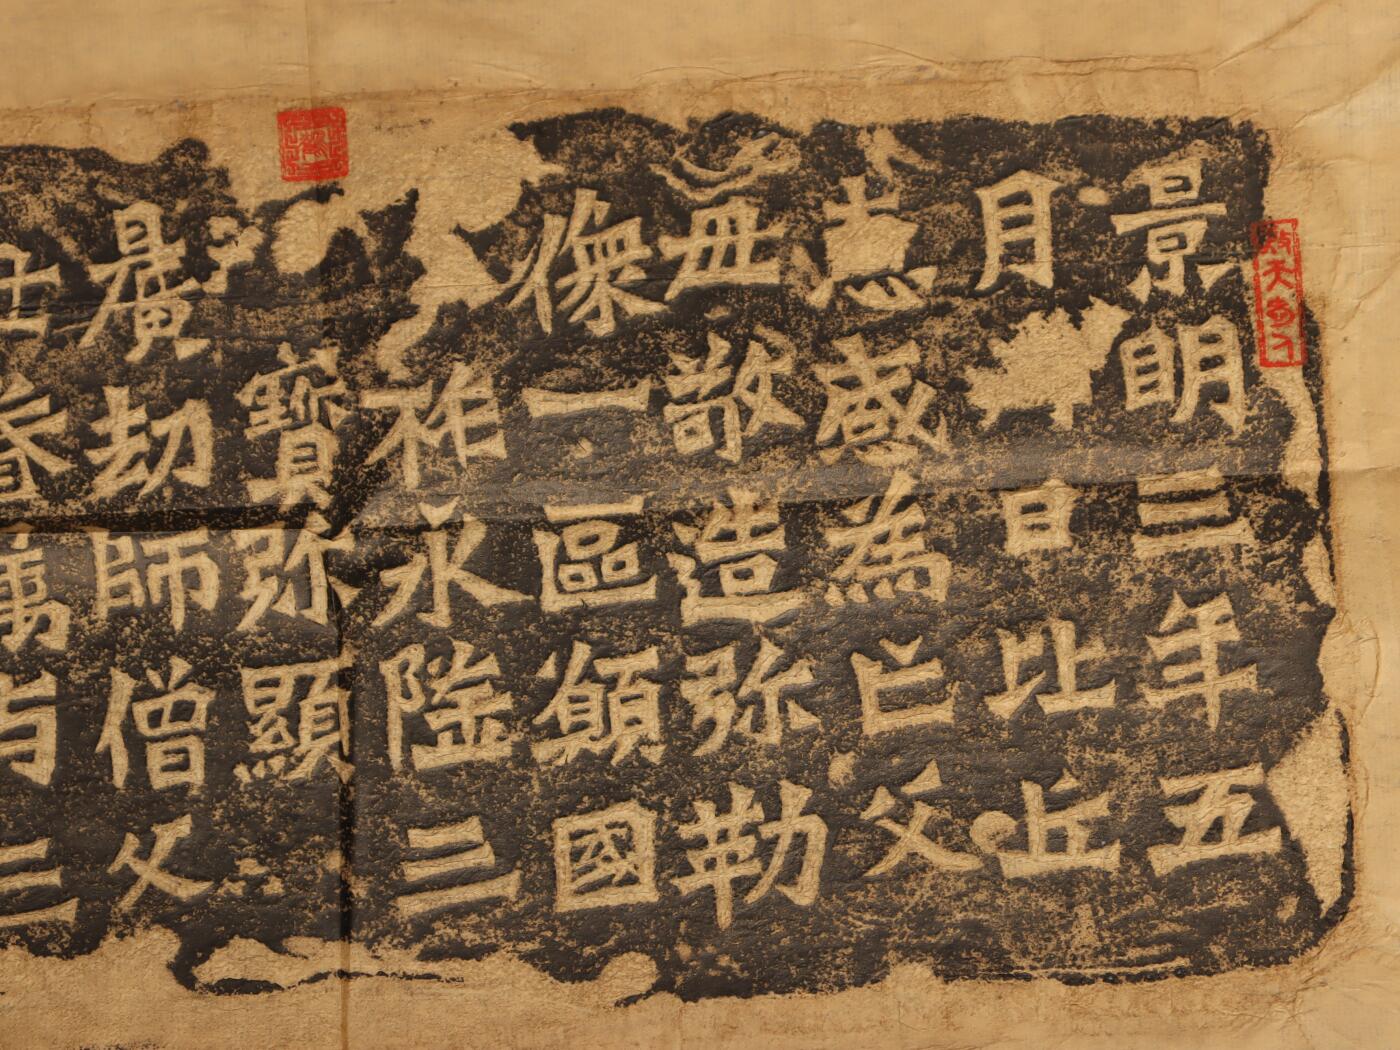 景明三年五
月日比丘
惠感為亡父
母敬造弥勒
像一區願國
祚永隆三
寶弥顯
曠劫師僧父
眷屬与三